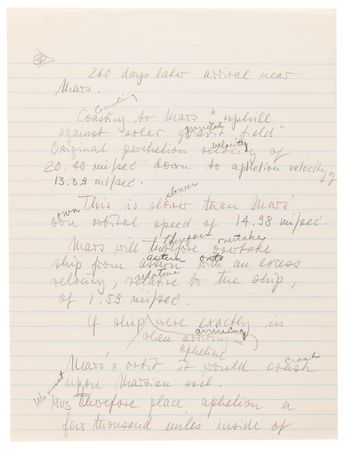 260 days later arrival near
Mars.
Coasting
Coasting to Mars "uphill
gravitat.
against solar gravit field"
velocity
Original perihelion velocity of
20.40 mi/sec down to aphelion velocity of
13.39 mi/sec.
slower
This is slow than Mars'
own
own orbital speed of 14.98 mi/sec
therefore overtake
Mars will therefore overtake
astern onto
ship from astern with an excess
relative
velocity, relative to the ship,
of 1.59 mi/sec.
If ship were exactly in
arriving
when arriving in
aphelion
crash
Mars's orbit it would crash
upon Marsian soil.
We must
Mus therefore place aphelion a
few thousand miles inside of